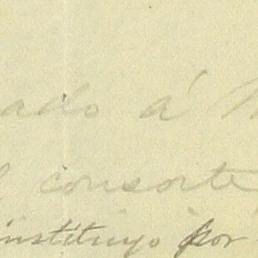 ado á
consorte
instituyo por